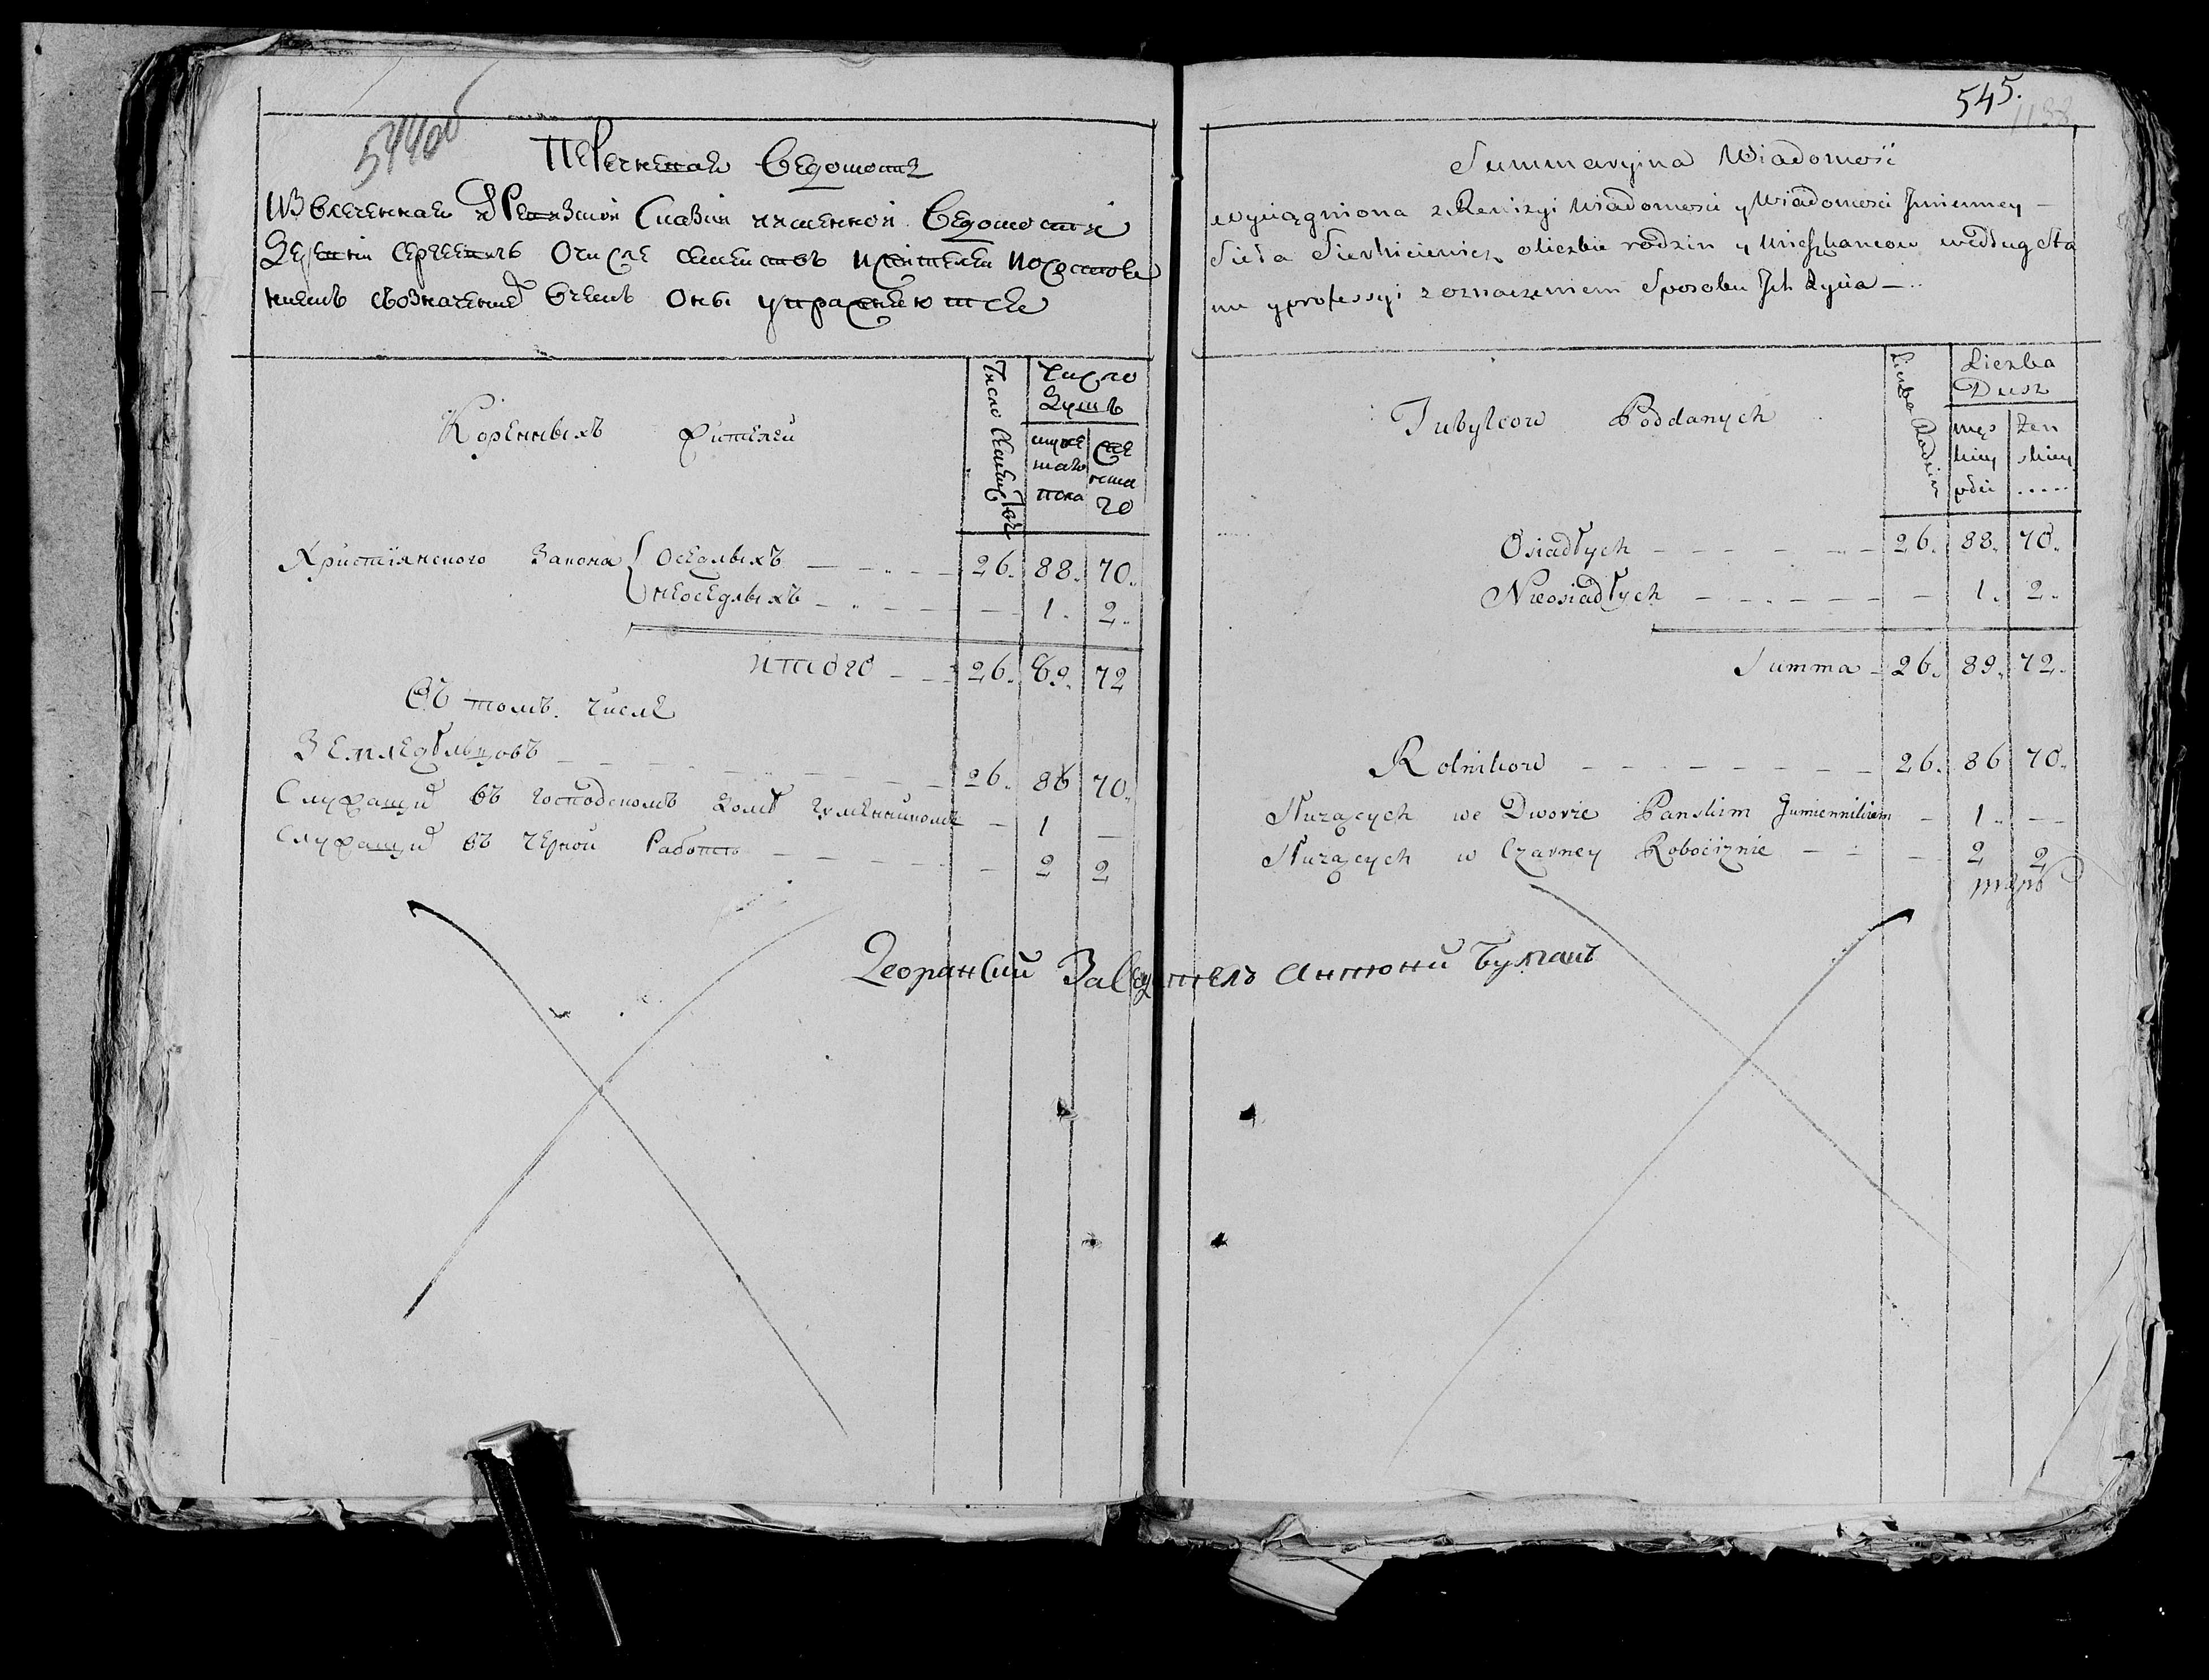 544об
Перечневая ведомость
Извлеченная из Ревизкой Сказки имянной ведомости
о числе семейств и жителей по состоя
нием съозначением вчем оны упражняются
Коренныхъ жителей
Число семейства
Число
Душъ
мужес
каго
пола
Же
нска
го
Христіянского Закона { Оседлыхъ 26. 88. 70.
неоседлыхъ — 1. 2.
итого 26. 89. 72
Въ томъ числе
Земледельцовъ 26. 86 70.
Служащий въ господскомъ доме гуменникомъ — 1 —
Служащий въ черной Работе — 2 2
Дворанский Антоний
545.
Summaryina Wiadomość
wyciągniona z Rewizyi Wiadomosci y Wiadomosci Jmienney
Sieła o liczbie rodzin y Mieszkancow według Sta
nu y professyi z oznaczeniem Sposobu Jch Życia
Tubylcow Poddanych
Liczba Rodzin
Liczba
Dusz
męs
kiey
płci
żen
skiey
.....
Osiadłych 26. 88. 70.
Nieosiadłych — 1. 2.
Summa 26. 89. 72.
Rolnikow 26. 86 70.
Służących we Dworze Panskim Gumiennikiem — 1 —
Służących w Czarney Robociznie — 2 2